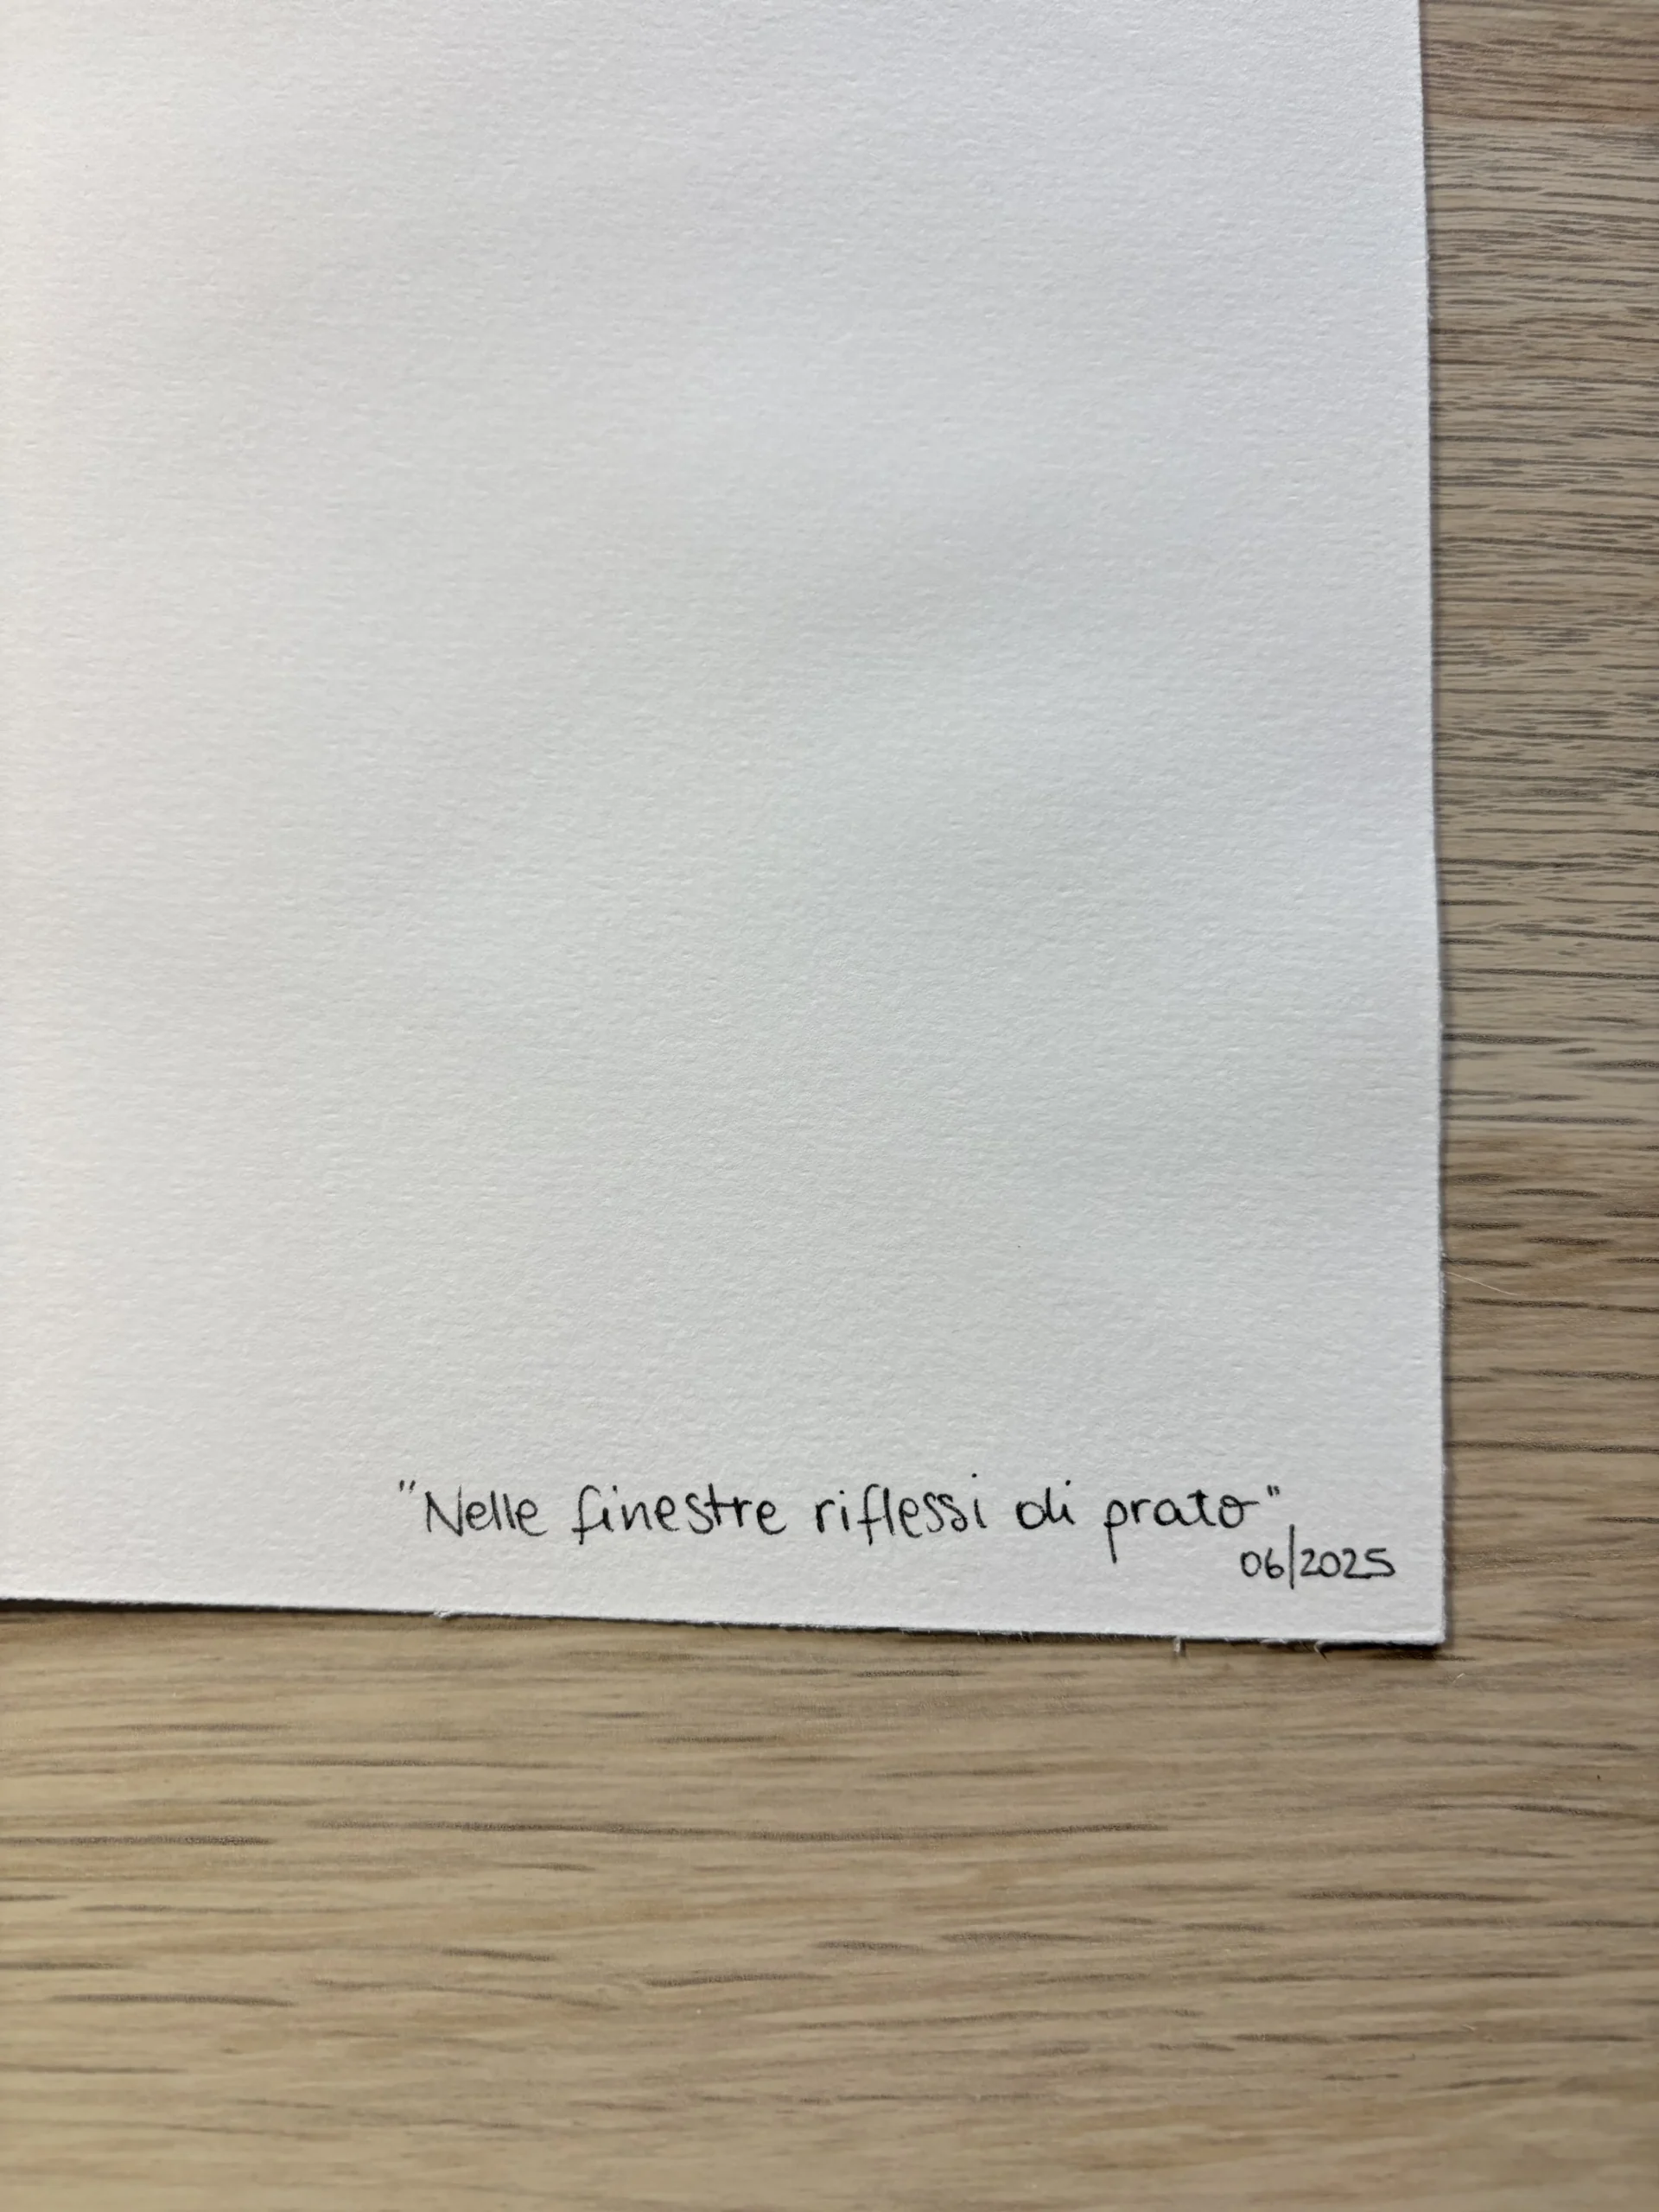 "Nelle finestre riflessi di prato"
06/2025